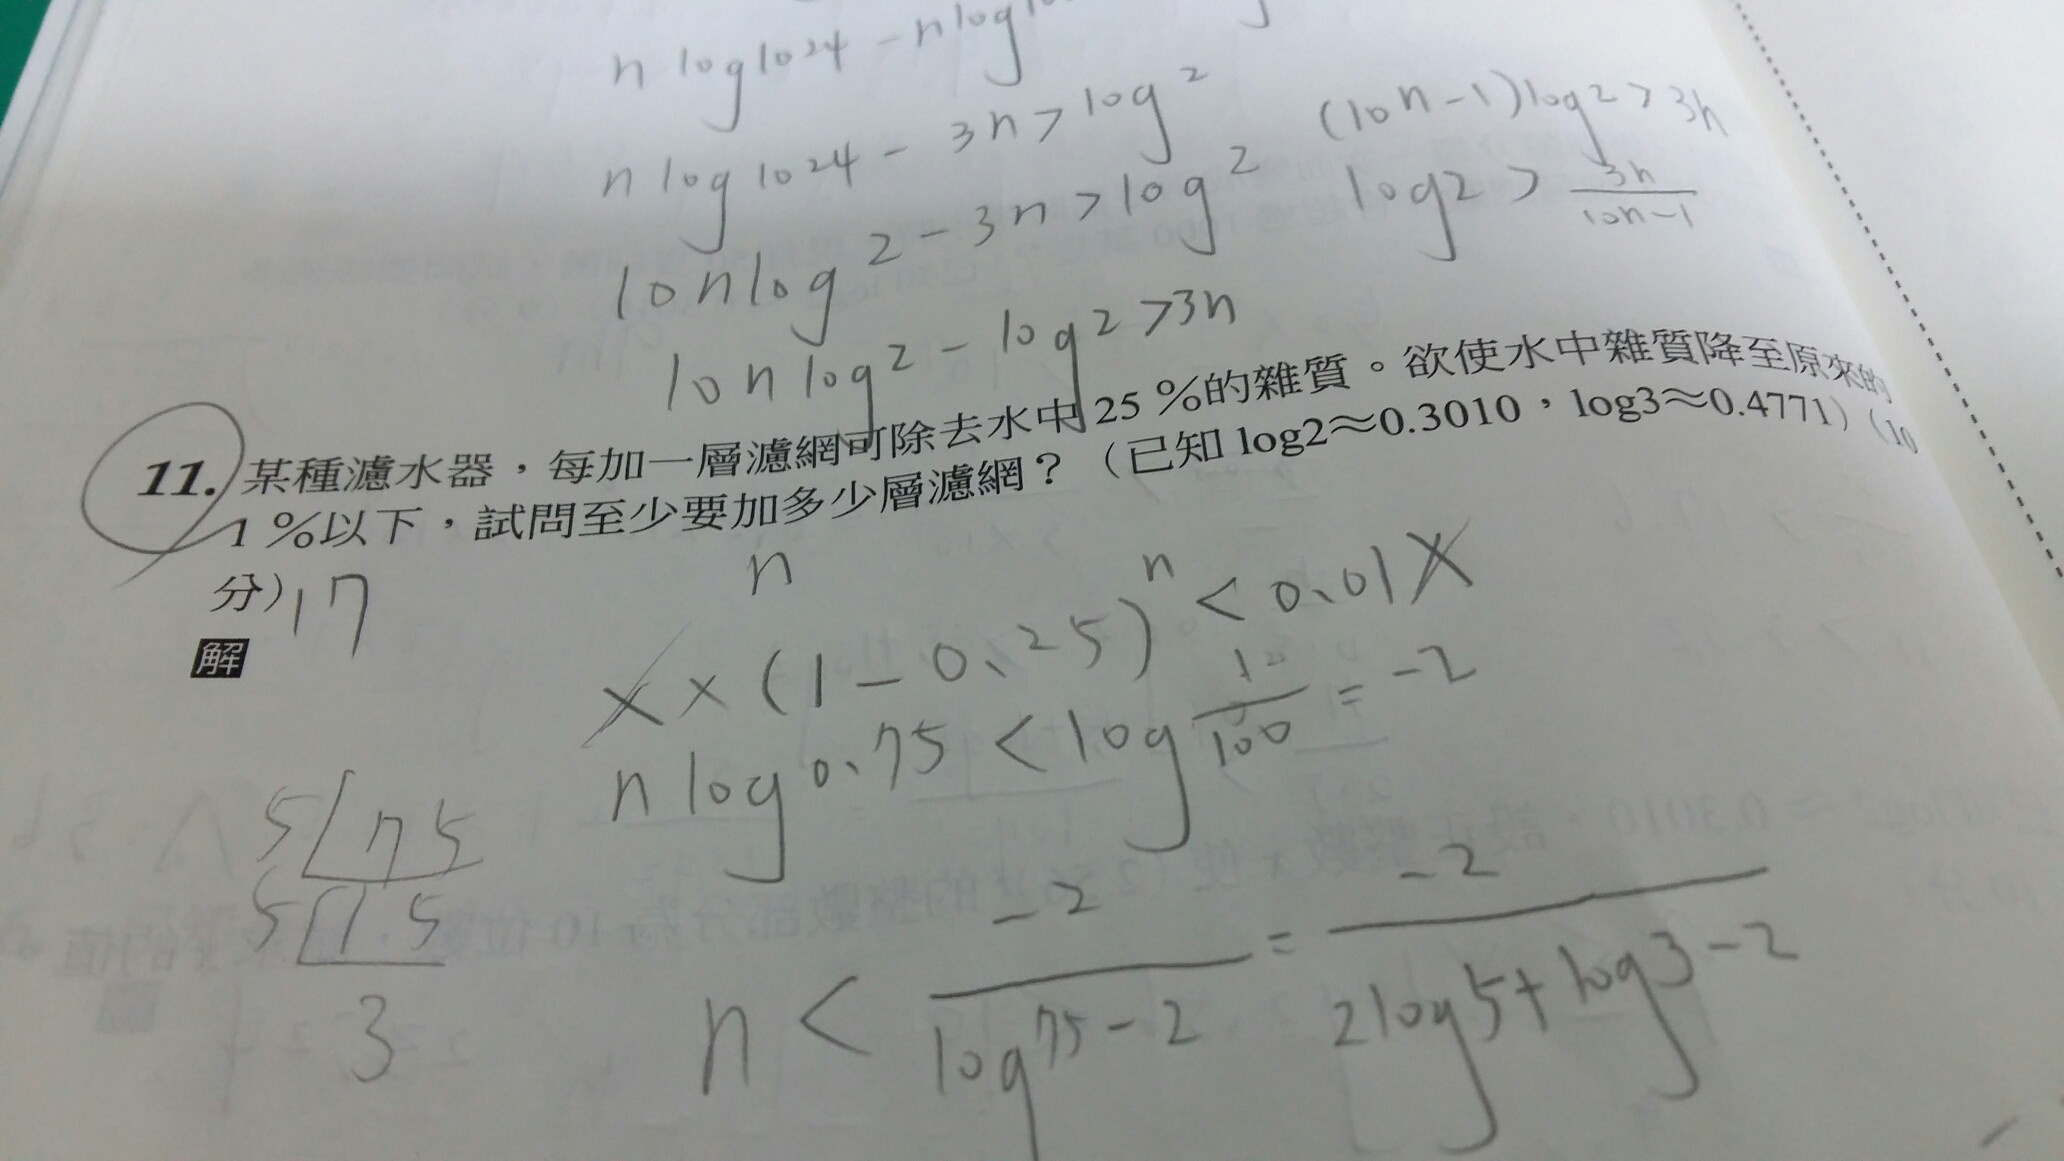 n log1024 - nlog
n log1024 - 3n > log2
(10n-1)log2 > 3n
10nlog2 - 3n > log2
log2 > 3n/10n-1
10nlog2 - log2 > 3n
11. 某種濾水器，每加一層濾網可除去水中25％的雜質。欲使水中雜質降至原來的
1％以下，試問至少要加多少層濾網？（已知log2≈0.3010，log3≈0.4771）（10
分）17
n
解
X×(1-0.25)^n < 0.01X
nlog0.75 < log 1/100 = -2
5 75
5 15
3
n < -2/log75-2 = -2/2log5+log3-2